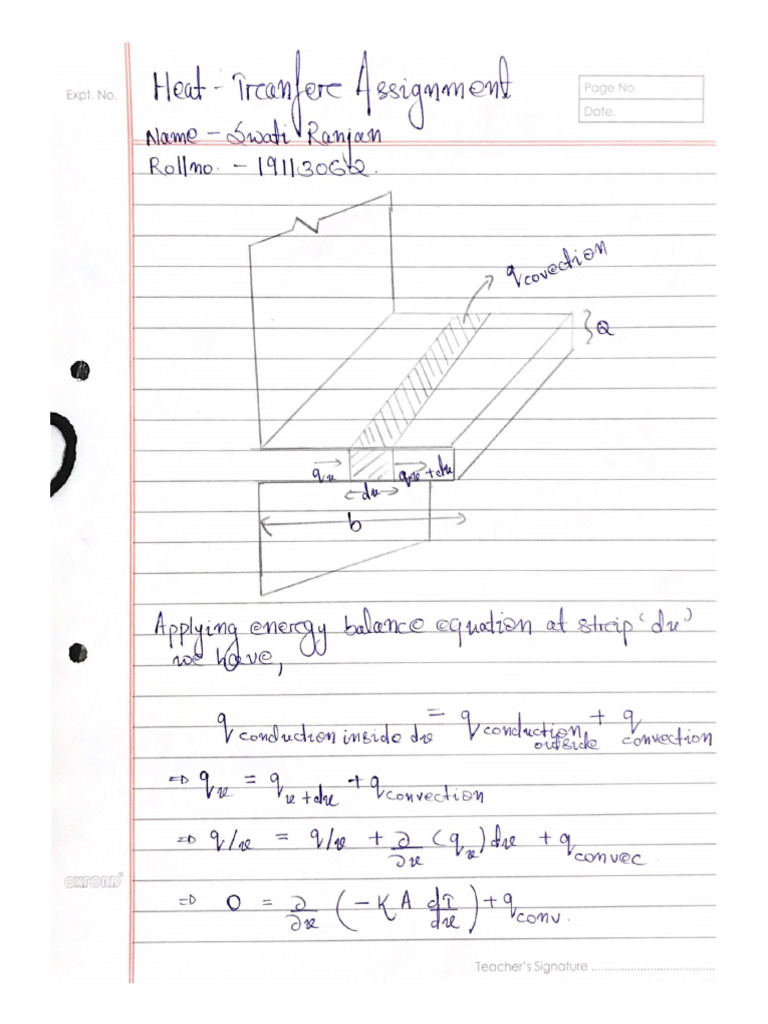 Expt. No.
Heat - Trcanferc Assignment
Page No.
Date.
Name - Swati Ranjan
Roll no. - 191113062.
q covection
Q
q x
q x + dx
dx
b
Applying enercgy balance equation at strcip 'dx'
we have,
q conduction inside dx = q conduction outside + q convection
⇒ q x = q x + dx + q convection
⇒ q/x = q/x + ∂/∂x (q x) dx + q convec
⇒ 0 = ∂/∂x (-KA dT/dx) + q conv.
OXFORD
Teacher's Signature